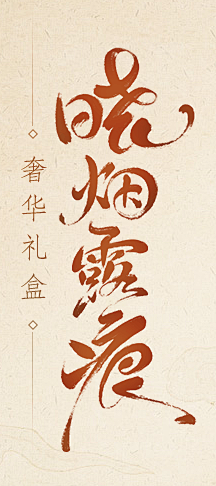 晓烟露痕
奢华礼盒